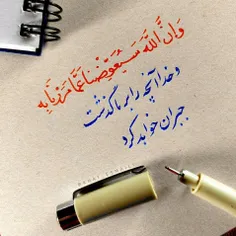 وَإِنَّ اللَّهَ سَيُعَوِّضُنَا عَمَّا مَرَرْنَا بِهِ
و خدا آنچه را بر ما گذشت
جبران خواهد کرد